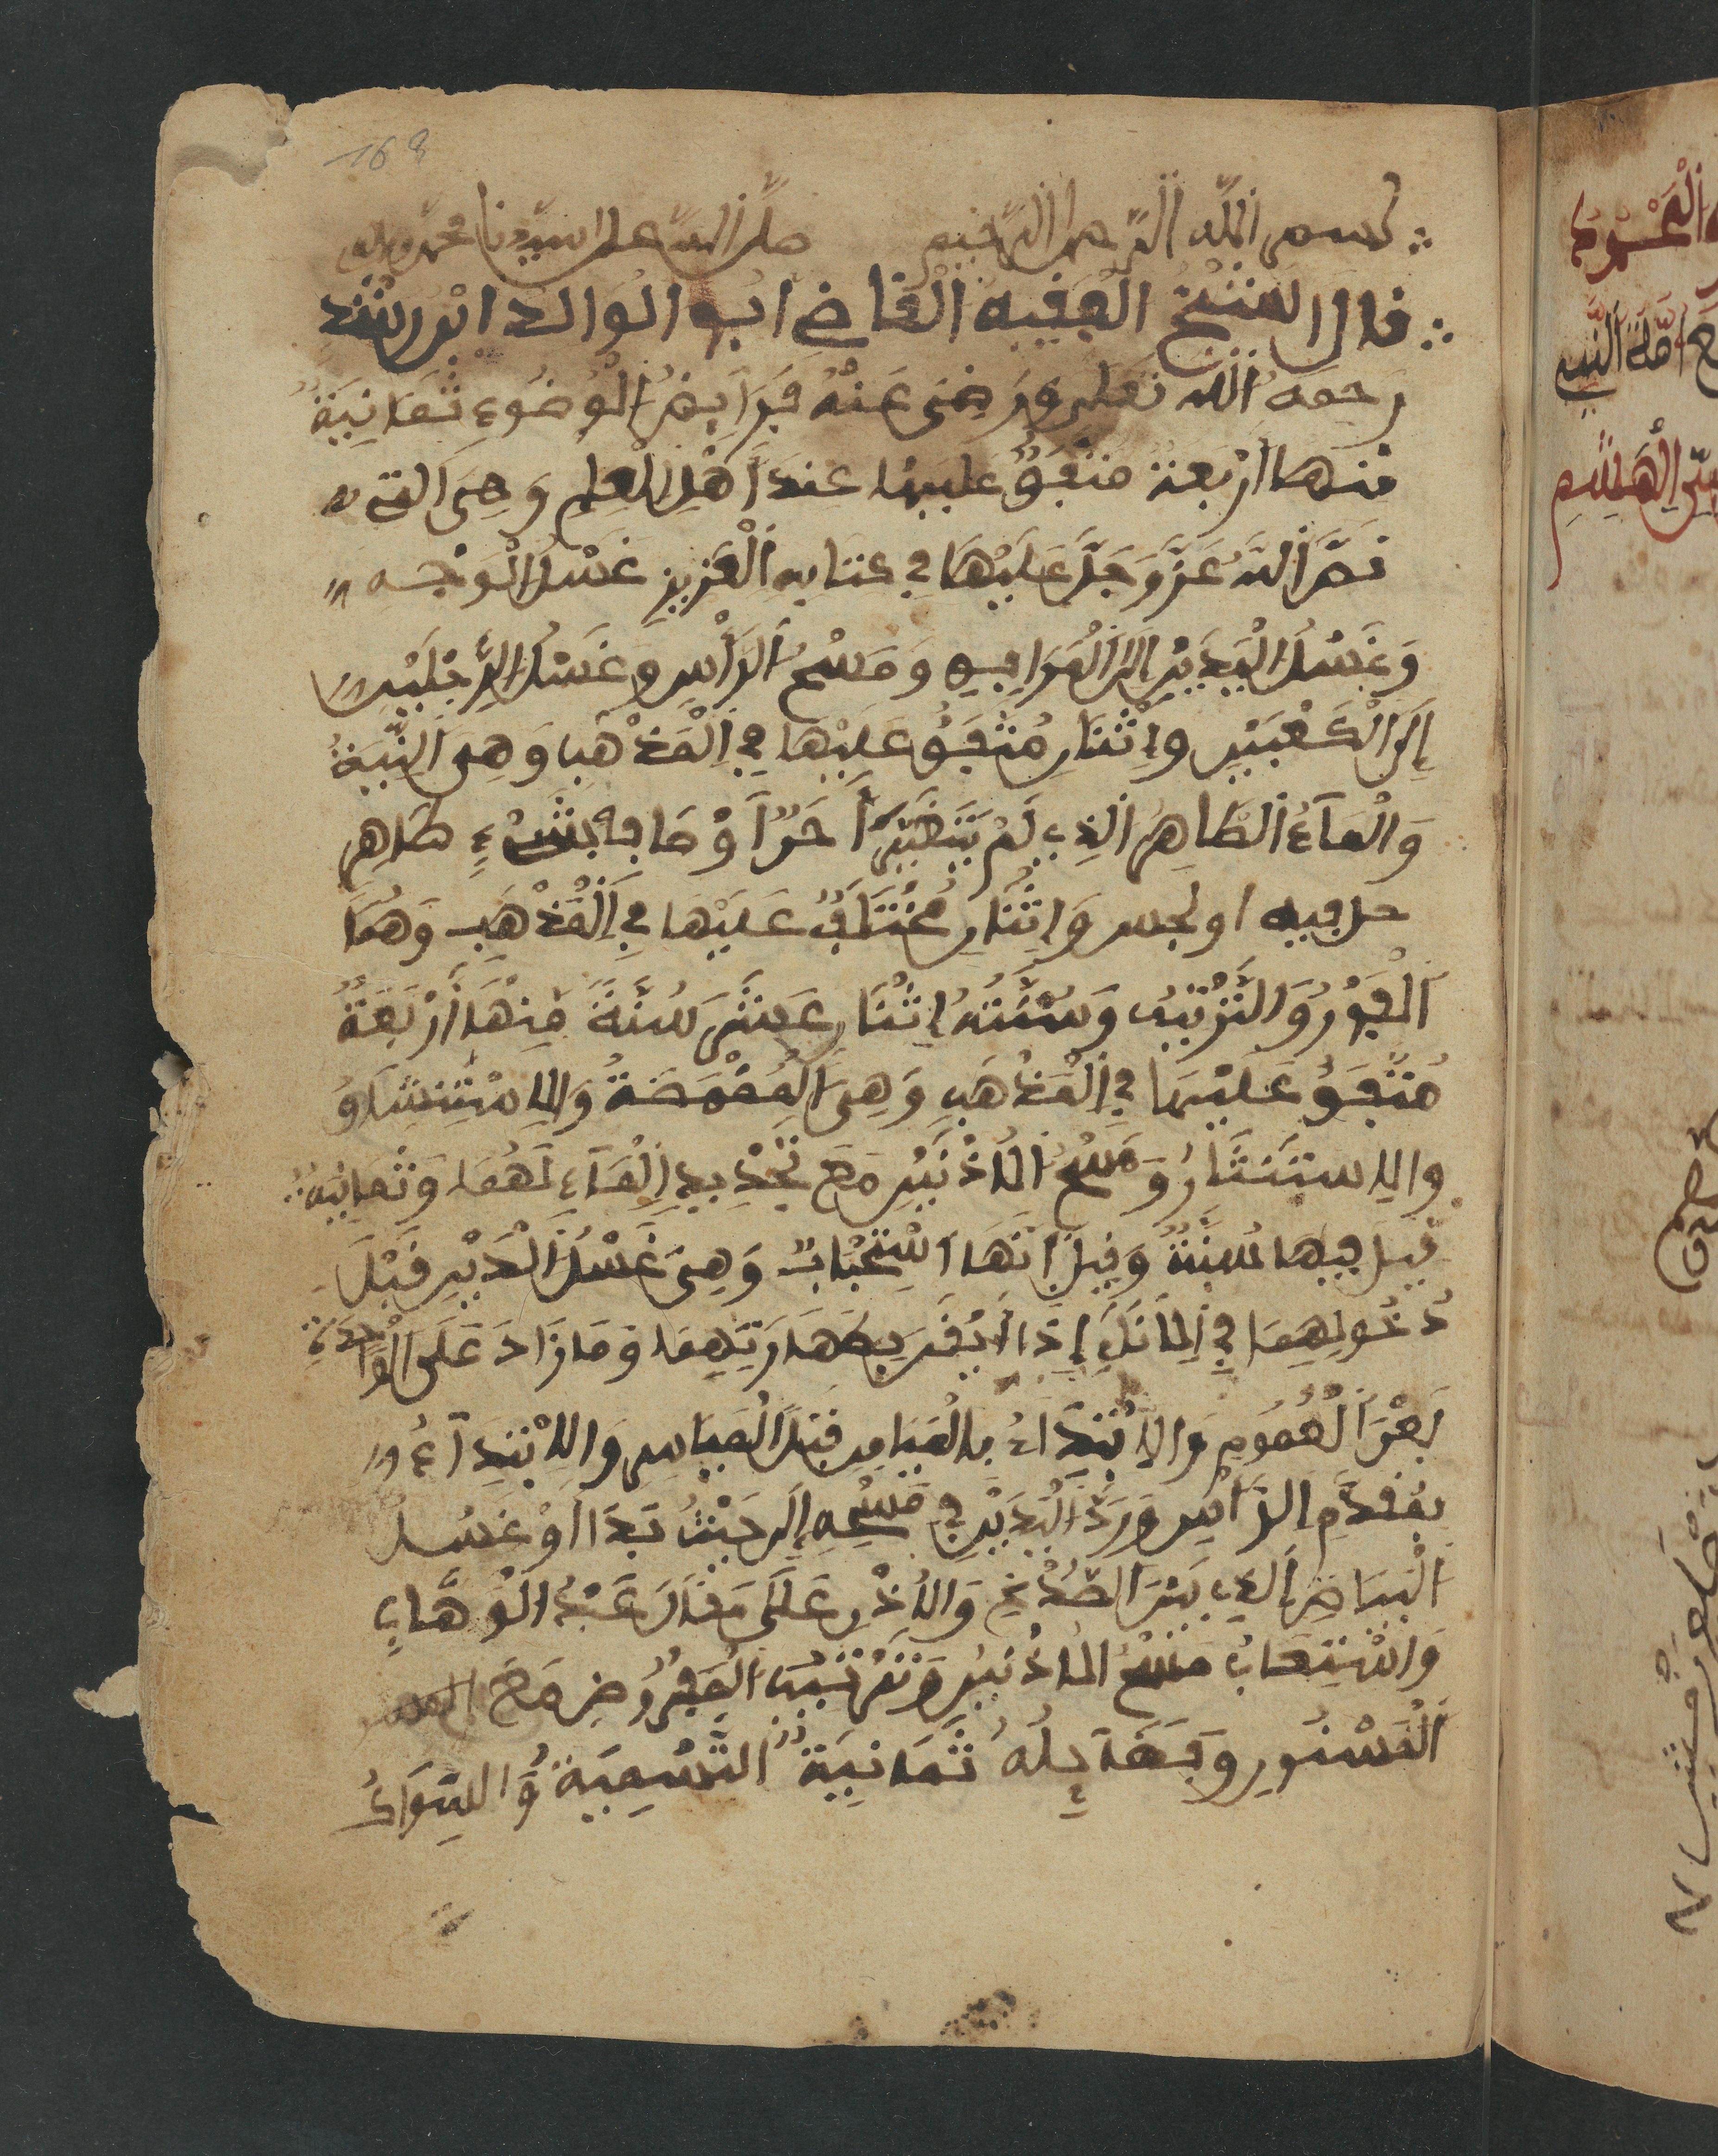 169
بسم الله الرحمن الرحيم صلى الله على سيدنا محمد وآله
قال الشيخ الفقيه القاضي ابو الوالد ابن رشد
رحمه الله تعلى ورَضِيَ عَنْهُ فَرَآيِضُ الْوُضُوءِ ثَمَانِيَةٌ
منها اَرْبَعة متفَقٌ عليها عند أَهْلِ الْعِلمِ وَهِيَ التي
نصَّ اللَّهُ عَزَّ وَجَلَّ عَلَيْهَا في كتابه الْعَزِيزِ غَسْلُ الْوَجْهِ
وَغَسْلُ الْيَدَيْنِ إلى الْمَرَافِقِ وَمَسْحُ الرَّأْسِ وَغَسْلُ الرِّجْلَيْنِ
إِلَى الْكَعْبَيْنِ وَاِثْنَانِ مُتَّفَقٌ عَلَيْهَا فِي الْمَذْهَبِ وَهِيَ النِّيَةُ
وَالْمَآءُ الطَّاهِرُ الذِي لَمْ يَتَغَيَّرْ أَحَدٌ أَوْصَافِهِ بِشَيْءٍ طاهر
حل فيه او نجس وَاثْنَانِ مُخْتَلَفٌ عَلَيْهَا فِي الْمَذْهَبِ وَهُمَا
الْفَوْرُ وَالتَّرْتِيبُ وَسُنَنُهُ اِثْنَا عَشَرَ سُنَّةً مِنْهَا أَرْبَعَةٌ
مُتَّفَقٌ عَلَيْهَا فِي الْمَذْهَبِ وَهِيَ الْمَضْمَضَةُ وَالِاسْتِنْشَاقُ
والاستنثارُ وَمَسْحُ الْأذْنَيْنِ مَعَ تَجْدِيدِ الْمَآءِ لَهُمَا وَثَمَانِيَةٌ
قِيلَ فِيهَا سُنَّةٌ وَقِيلَ إنَّهَا اسْتِحْبَابٌ وَهِيَ غَسْلُ الْيَدَيْنِ قَبْلَ
دُخُولِهِمَا فِي الْإِنَآءِ إِذَا أَيْقَنَ بِطَهَارَتِهِمَا وَمَا زَادَ عَلَى الْوَاحِدَةِ
بَعْدَ الْعُمُومِ وَالِابْتِدَاءُ بِالْمَيَامِنِ قَبْلَ الْمَيَاسِرِ وَالِابْتِدَآءُ
بِمُقَدَّمِ الرَّأْسِ وَرَدُّ الْيَدَيْنِ فِي مَسْحِهِ إِلَى حَيْثُ بَدَا أَوْ غَسْلُ
الْبَيَاضِ الَّذِي بَيْنَ الصُّدْغِ وَالْأُذْنِ عَلَى مَا قَالَ عَبْدُ الْوَهَّابِ
وَاسْتِيعَابُ مَسْحُ الْأُذْنَيْنِ وَتَرْتِيبُ الْمَفْرُوضِ مَعَ
الْمَسْنُونِ وَفَضَآيِلُهُ ثَمَانِيَةٌ التَّسْمِيَةُ وَالسِّوَاكُ